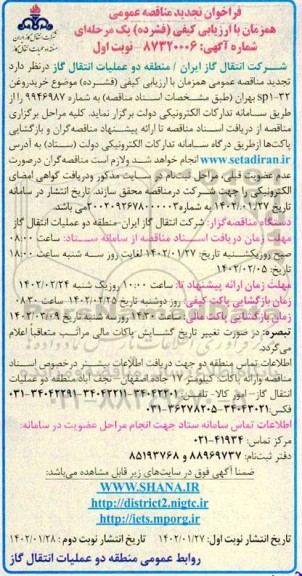 فراخوان تجدید مناقصه عمومی
همزمان با ارزیابی کیفی (فشرده) یک مرحله‌ای
شماره آگهی: ۸۷۳۲۰۰۰۶ - نوبت اول
شرکت انتقال گاز ایران / منطقه دو عملیات انتقال گاز درنظر دارد
تجدید مناقصه عمومی همزمان با ارزیابی کیفی (فشرده) موضوع خریدروغن
sp۱-۳۲ بهران (طبق مشخصات اسناد مناقصه) به شماره ۹۹۴۶۹۸۷ را از
طریق سامانه تدارکات الکترونیکی دولت برگزار نماید. کلیه مراحل برگزاری
مناقصه از دریافت اسناد مناقصه تا ارائه پیشنهاد مناقصه‌گران و بازگشایی
پاکت‌ها ازطریق درگاه سامانه تدارکات الکترونیکی دولت (ستاد) به آدرس
www.setadiran.ir انجام خواهد شد ولازم است مناقصه‌گران درصورت
عدم عضویت قبلی مراحل ثبت‌نام در سایت مذکور ودریافت گواهی امضای
الکترونیکی را جهت شرکت درمناقصه محقق سازند. تاریخ انتشار در سامانه
تاریخ ۱۴۰۲/۰۱/۲۷ به شماره ۲۰۰۲۰۹۲۶۷۸۰۰۰۰۰۳ می‌باشد.
دستگاه مناقصه‌گزار: شرکت انتقال گاز ایران-منطقه دو عملیات انتقال گاز
مهلت زمان دریافت اسناد مناقصه از سامانه ستاد: ساعت ۰۸:۰۰
صبح روزیکشنبه تاریخ: ۱۴۰۲/۰۱/۲۷ لغایت روز سه شنبه ساعت ۱۸:۰۰
تاریخ: ۱۴۰۲/۰۲/۰۵
مهلت زمان ارائه پیشنهاد تا: ساعت ۱۰:۰۰ روزیک شنبه ۱۴۰۲/۰۲/۲۴
زمان بازگشایی پاکت کیفی: روز دوشنبه تاریخ ۱۴۰۲/۰۲/۲۵ ساعت ۰۸:۳۰
زمان بازگشایی پاکت مالی: ساعت ۱۴:۳۰ روز سه‌شنبه تاریخ ۱۴۰۲/۰۳/۰۹
تبصره: در صورت تغییر تاریخ گشایش پاکات مالی مراتب متعاقباً اعلام
می‌گردد.
اطلاعات تماس منطقه دو جهت دریافت اطلاعات بیشتر درخصوص اسناد
مناقصه وارائه پاکات: کیلومتر ۱۷ جاده اصفهان - نجف آباد منطقه دو عملیات
انتقال گاز - امور کالا - تلفن: ۳۴۰۴۲۲۰۱-۳۴۰۴۲۲۱۱-۳۴۰۴۲۲۹۱-۰۳۱
فکس: ۳۴۰۴۳۰۲۱-۳۶۲۷۸۲۰۵-۰۳۱
اطلاعات تماس سامانه ستاد جهت انجام مراحل عضویت در سامانه:
مرکز تماس: ۴۱۹۳۴-۰۲۱
دفتر ثبت‌نام: ۸۸۹۶۹۷۳۷ و ۸۵۱۹۳۷۶۸
ضمنا آگهی فوق در سایت‌های زیر قابل مشاهده می‌باشد:
WWW.SHANA.IR
http://district2.nigtc.ir
http://iets.mporg.ir
تاریخ انتشار نوبت اول: ۱۴۰۲/۰۱/۲۷ تاریخ انتشار نوبت دوم: ۱۴۰۲/۰۱/۲۸
روابط عمومی منطقه دو عملیات انتقال گاز